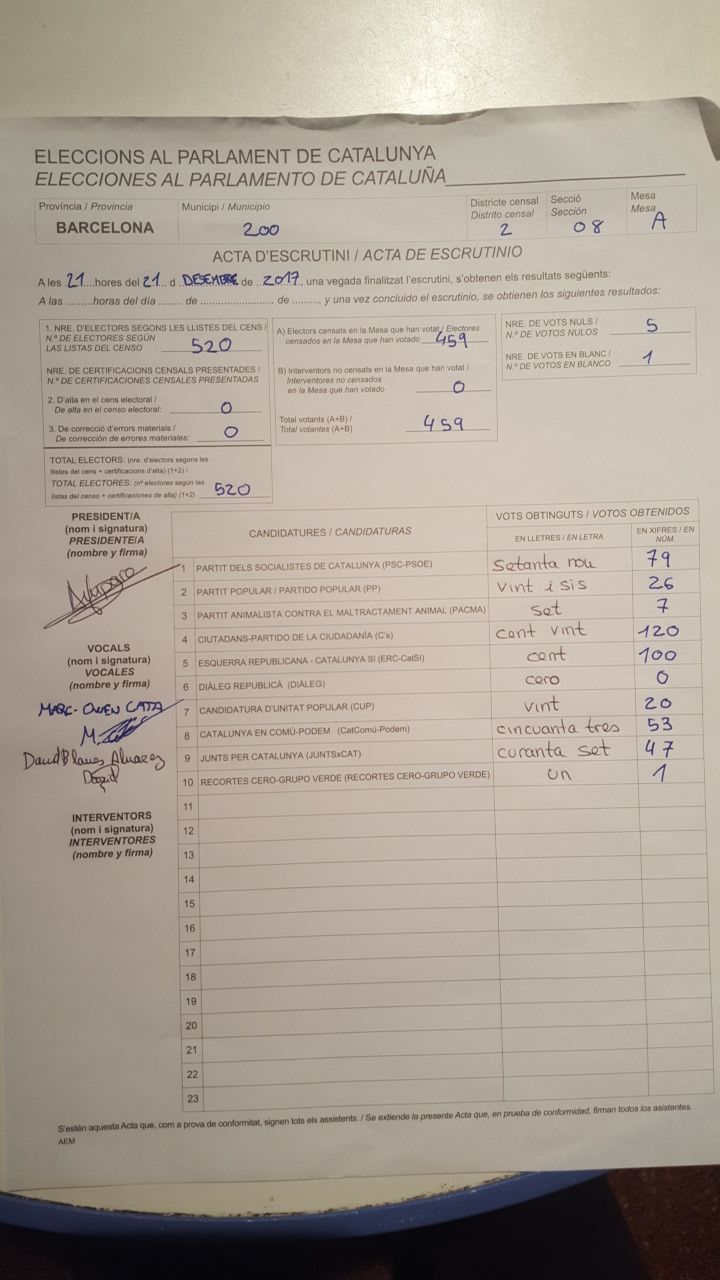 ELECCIONS AL PARLAMENT DE CATALUNYA
ELECCIONES AL PARLAMENTO DE CATALUÑA
Província / Provincia Municipi / Municipio Districte censal Secció Mesa
Distrito censal Sección Mesa
BARCELONA 200 2 08 A
ACTA D'ESCRUTINI / ACTA DE ESCRUTINIO
A les 21 hores del 21 d DESEMBRE de 2017, una vegada finalitzat l'escrutini, s'obtenen els resultats següents:
A las .........horas del día ........ de ......................... de ........., y una vez concluido el escrutinio, se obtienen los siguientes resultados:
1. NRE. D'ELECTORS SEGONS LES LLISTES DEL CENS /
N.º DE ELECTORES SEGÚN
LAS LISTAS DEL CENSO 520
NRE. DE CERTIFICACIONS CENSALS PRESENTADES /
N.º DE CERTIFICACIONES CENSALES PRESENTADAS
2. D'alta en el cens electoral /
De alta en el censo electoral: 0
3. De correcció d'errors materials /
De corrección de errores materiales: 0
TOTAL ELECTORS: (nre. d'electors segons les
llistes del cens + certificacions d'alta) (1+2) /
TOTAL ELECTORES: (nº electores según las
listas del censo + certificaciones de alta) (1+2) 520
A) Electors censats en la Mesa que han votat / Electores
censados en la Mesa que han votado 459
B) Interventors no censats en la Mesa que han votat /
Interventores no censados
en la Mesa que han votado 0
Total votants (A+B) /
Total votantes (A+B) 459
NRE. DE VOTS NULS /
N.º DE VOTOS NULOS 5
NRE. DE VOTS EN BLANC /
N.º DE VOTOS EN BLANCO 1
PRESIDENT/A
(nom i signatura)
PRESIDENTE/A
(nombre y firma)
VOCALS
(nom i signatura)
VOCALES
(nombre y firma)
MARC-OWEN CATA
David Blanes Alvarez
David
INTERVENTORS
(nom i signatura)
INTERVENTORES
(nombre y firma)
CANDIDATURES / CANDIDATURAS VOTS OBTINGUTS / VOTOS OBTENIDOS
EN LLETRES / EN LETRA EN XIFRES / EN NÚM.
1 PARTIT DELS SOCIALISTES DE CATALUNYA (PSC-PSOE) Setanta nou 79
2 PARTIT POPULAR / PARTIDO POPULAR (PP) vint i sis 26
3 PARTIT ANIMALISTA CONTRA EL MALTRACTAMENT ANIMAL (PACMA) set 7
4 CIUTADANS-PARTIDO DE LA CIUDADANÍA (C's) cent vint 120
5 ESQUERRA REPUBLICANA - CATALUNYA SI (ERC-CatSí) cent 100
6 DIÀLEG REPUBLICÀ (DIÀLEG) cero 0
7 CANDIDATURA D'UNITAT POPULAR (CUP) vint 20
8 CATALUNYA EN COMÚ-PODEM (CatComú-Podem) cincuanta tres 53
9 JUNTS PER CATALUNYA (JUNTSxCAT) curanta set 47
10 RECORTES CERO-GRUPO VERDE (RECORTES CERO-GRUPO VERDE) un 1
11
12
13
14
15
16
17
18
19
20
21
22
23
S'estén aquesta Acta que, com a prova de conformitat, signen tots els assistents. / Se extiende la presente Acta que, en prueba de conformidad, firman todos los asistentes.
AEM